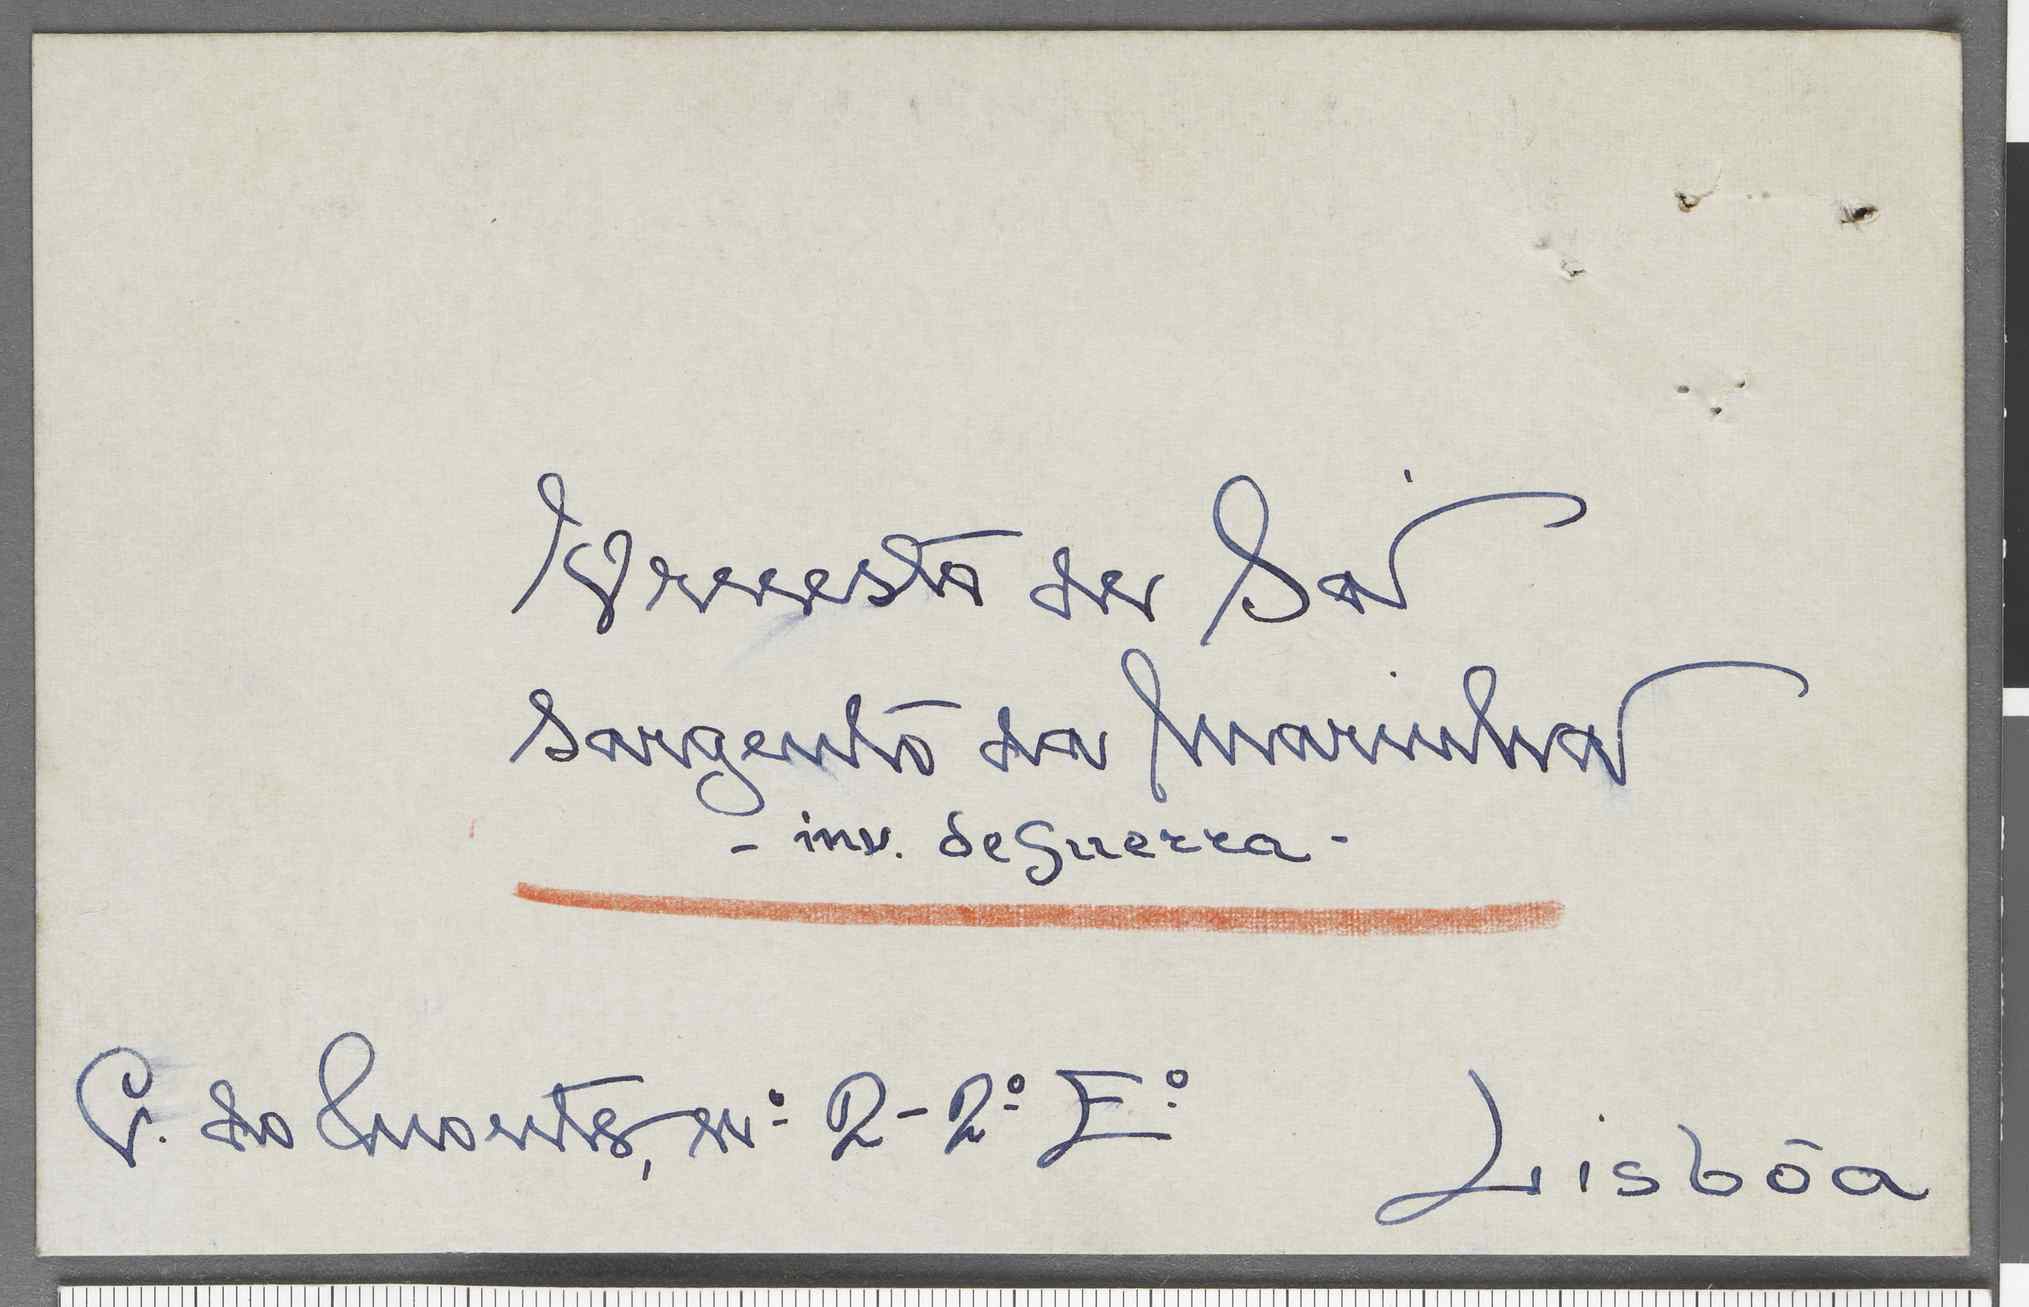 Ernesto de Sá
Sargento da Marinha
- inv. de Guerra -
C. do Monte, nº 2-2º Eº
Lisbôa